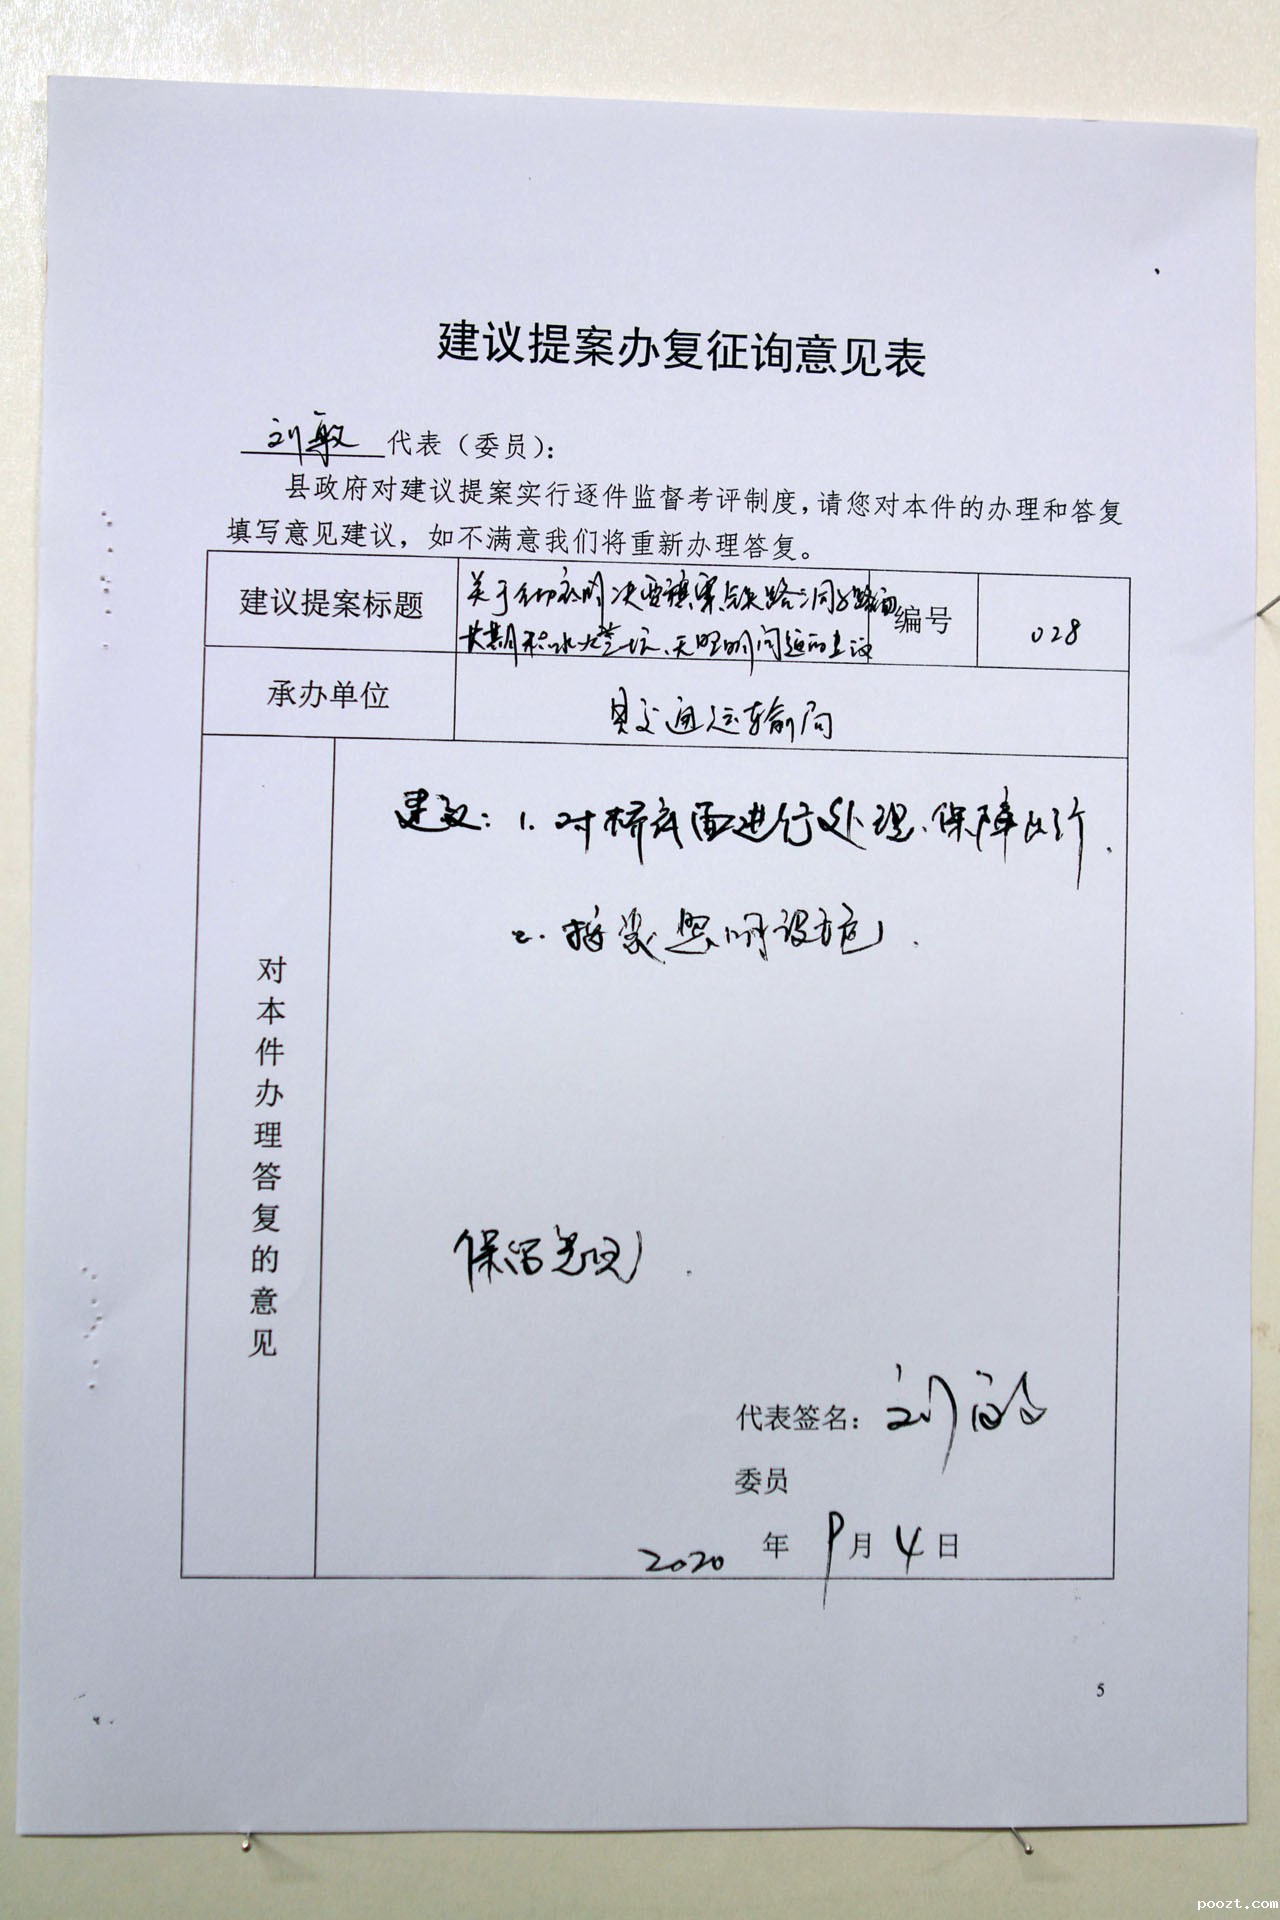 建议提案办复征询意见表
刘敏 代表（委员）：
县政府对建议提案实行逐件监督考评制度，请您对本件的办理和答复
填写意见建议，如不满意我们将重新办理答复。
建议提案标题
关于彻底解决 铁路洞子路面
长期积水 无照明问题的建议
编号
028
承办单位
县交通运输局
对本件办理答复的意见
建议：1. 对桥底面进行处理、保障出行.
2. 接装照明设施.
保留意见.
代表签名：刘敏
委员
2020 年 9月 4日
5
poozt.com